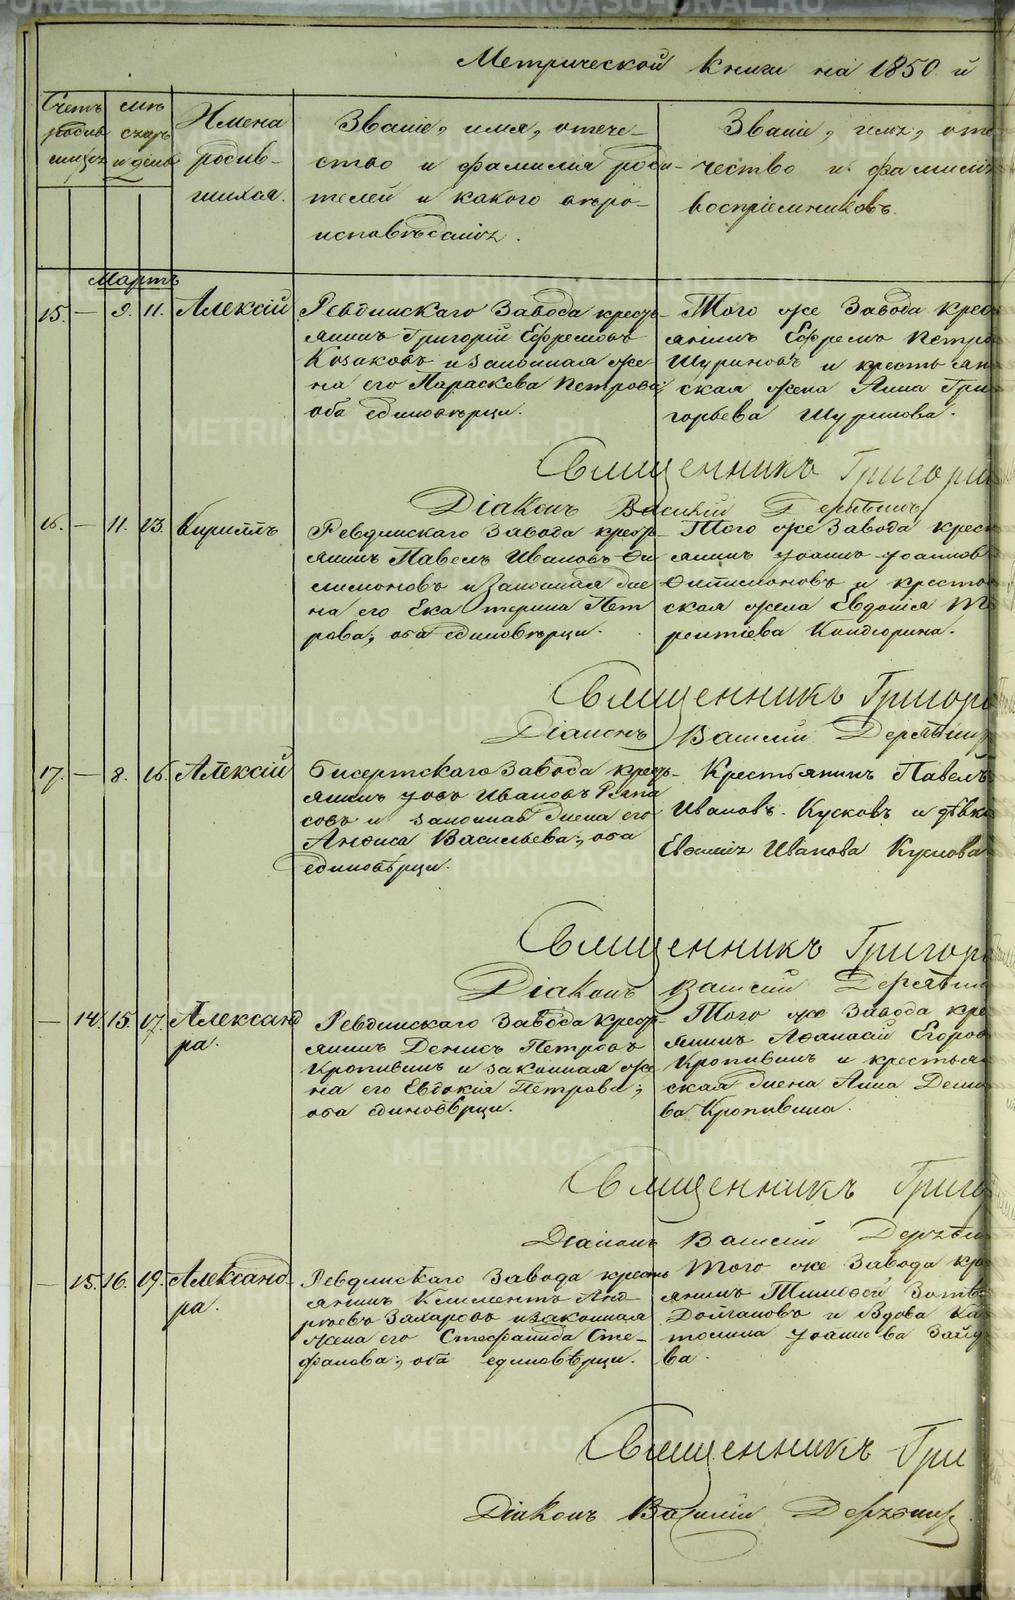 Метрической книги на 1850 й
Счетъ родив шихся
мѣс сяцъ и день
Имена родив- шихся.
Званіе, имя, отече-
ство и фамилія роди-
телей и какого вѣро-
исповѣданія.
Званіе, имя, оте
чество и фамилія
воспріемниковъ.
Мартъ
15. — 9. 11. Алексій
Ревдинскаго Завода кресть-
янинъ Григорій Ефремовъ
Козаковъ и законная же
на его Параскева Петрова;
оба единовѣрцы.
Того же Завода крес
янинъ Ефремъ Петро
Шуриновъ и крестьян
ская жена Анна Гри
горьева Шуринова.
Священникъ Григори
Діаконъ Василій
16. — 11. 23. Кириллъ
Ревдинскаго Завода кресть-
янинъ Павелъ Ивановъ Фи
лимоновъ и Законная же
на его Екатерина Пет
рова; оба единовѣрцы.
Того же Завода крест
янинъ Іоаннъ Іоаннов
Филимоновъ и кресть
ская жена Евдокія
рентіева Кондюрина.
Священникъ Григоре
Діаконъ Василій
17. — 8. 16. Алексій
Бисертскаго Завода кресть-
янинъ Іовъ Ивановъ
совъ и законная жена его
Анфиса Васильева; оба
единовѣрцы.
Крестьянинъ Павелъ
Ивановъ Кусковъ и дѣвка
Евфимія Иванова Кускова
Священникъ Григоре
Діаконъ Василій
— 14. 15. 17. Александ
ра.
Ревдинскаго Завода крест-
янинъ Денисъ Петровъ
Кропивинъ и законная же
на его Евдокія Петрова;
оба единовѣрцы.
Того же Завода кре
янинъ Афанасій Егоров
Кропивинъ и крестьян
ская жена Анна Дени
ва Кропивина.
Священникъ Григо
Діаконъ Василій
— 15. 16. 19. Александ
ра.
Ревдинскаго Завода кресть
янинъ Климентъ Анд
рѣевъ Захаровъ и законная
жена его Стефанида Сте-
фанова; оба единовѣрцы.
Того же Завода кре
янинъ Тимофей
и Вдова Ка
толина Іоаннова
ва.
Священникъ Гри
Діаконъ Василій
METRIKI.GASO-URAL.RU